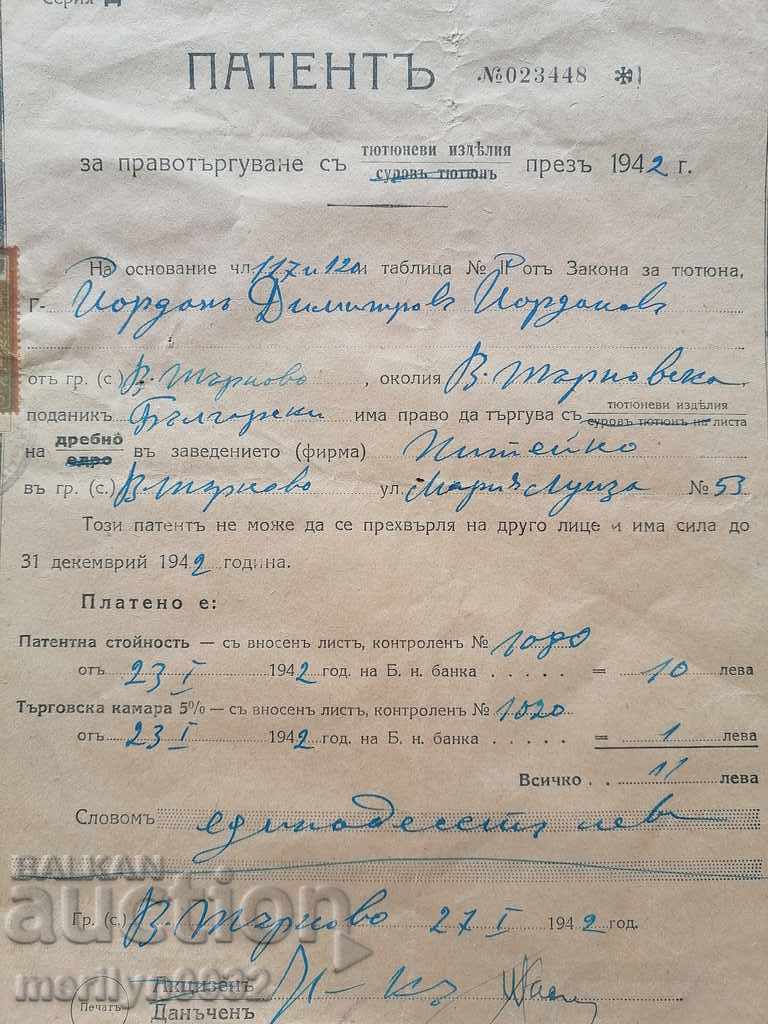 Серия Д
ПАТЕНТЪ №023448 ✻
за правотъргуване съ тютюневи издѣлия
суровъ тютюнъ презъ 1942 г.
На основание чл. 117 и 120 и таблица № II отъ Закона за тютюна,
Г- Йорданъ Димитровъ Йордановъ
отъ гр. (с.) В. Търново, околия В. Търновска
поданикъ Български има право да търгува съ тютюневи издѣлия
суровъ тютюнъ на листа
на дребно
едро въ заведението (фирма) Питейно
въ гр. (с.) В. Търново ул. Мария Луиза № 53
Този патентъ не може да се прехвърля на друго лице и има сила до
31 декемврий 1942 година.
Платено е:
Патентна стойность — съ вносенъ листъ, контроленъ №
отъ 23 I 1942 год. на Б. н. банка . . . . . = 10 лева
Търговска камара 5% — съ вносенъ листъ, контроленъ № 1020
отъ 23 I 1942 год. на Б. н. банка . . . . . = 1 лева
Всичко . . 11 лева
Словомъ единадесеть лева
Гр. (с.) В. Търново 27 I 1942 год.
Печатъ
Акцизенъ
Данъченъ
BALKAN
auction
merilyn0032